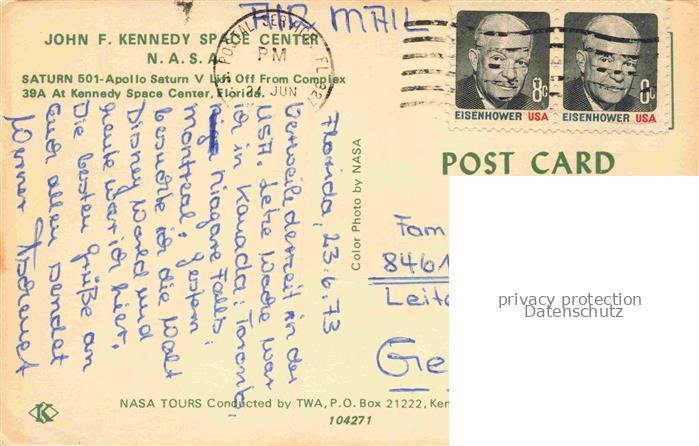 AIR MAIL
JOHN F. KENNEDY SPACE CENTER
N.A.S.A.
SATURN 501-Apollo Saturn V Lift Off From Complex
39A At Kennedy Space Center, Florida.
POSTAL SERVICE FL
PM
24 JUN
8c
EISENHOWER USA
8c
EISENHOWER USA
POST CARD
Color Photo by NASA
Florida, 23.6.73
derzeit in der
USA. Letzte Woche war
ich in Kanada: Toronto,
Niagara Falls,
Montreal. Gestern
besuchte ich die Walt
Disney World und
heute war ich hier.
Die besten Grüße an
Euch allen sendet
Werner
Fam
8461
Leit
Ge
privacy protection
Datenschutz
K
NASA TOURS Conducted by TWA, P.O. Box 21222, Ken
104271